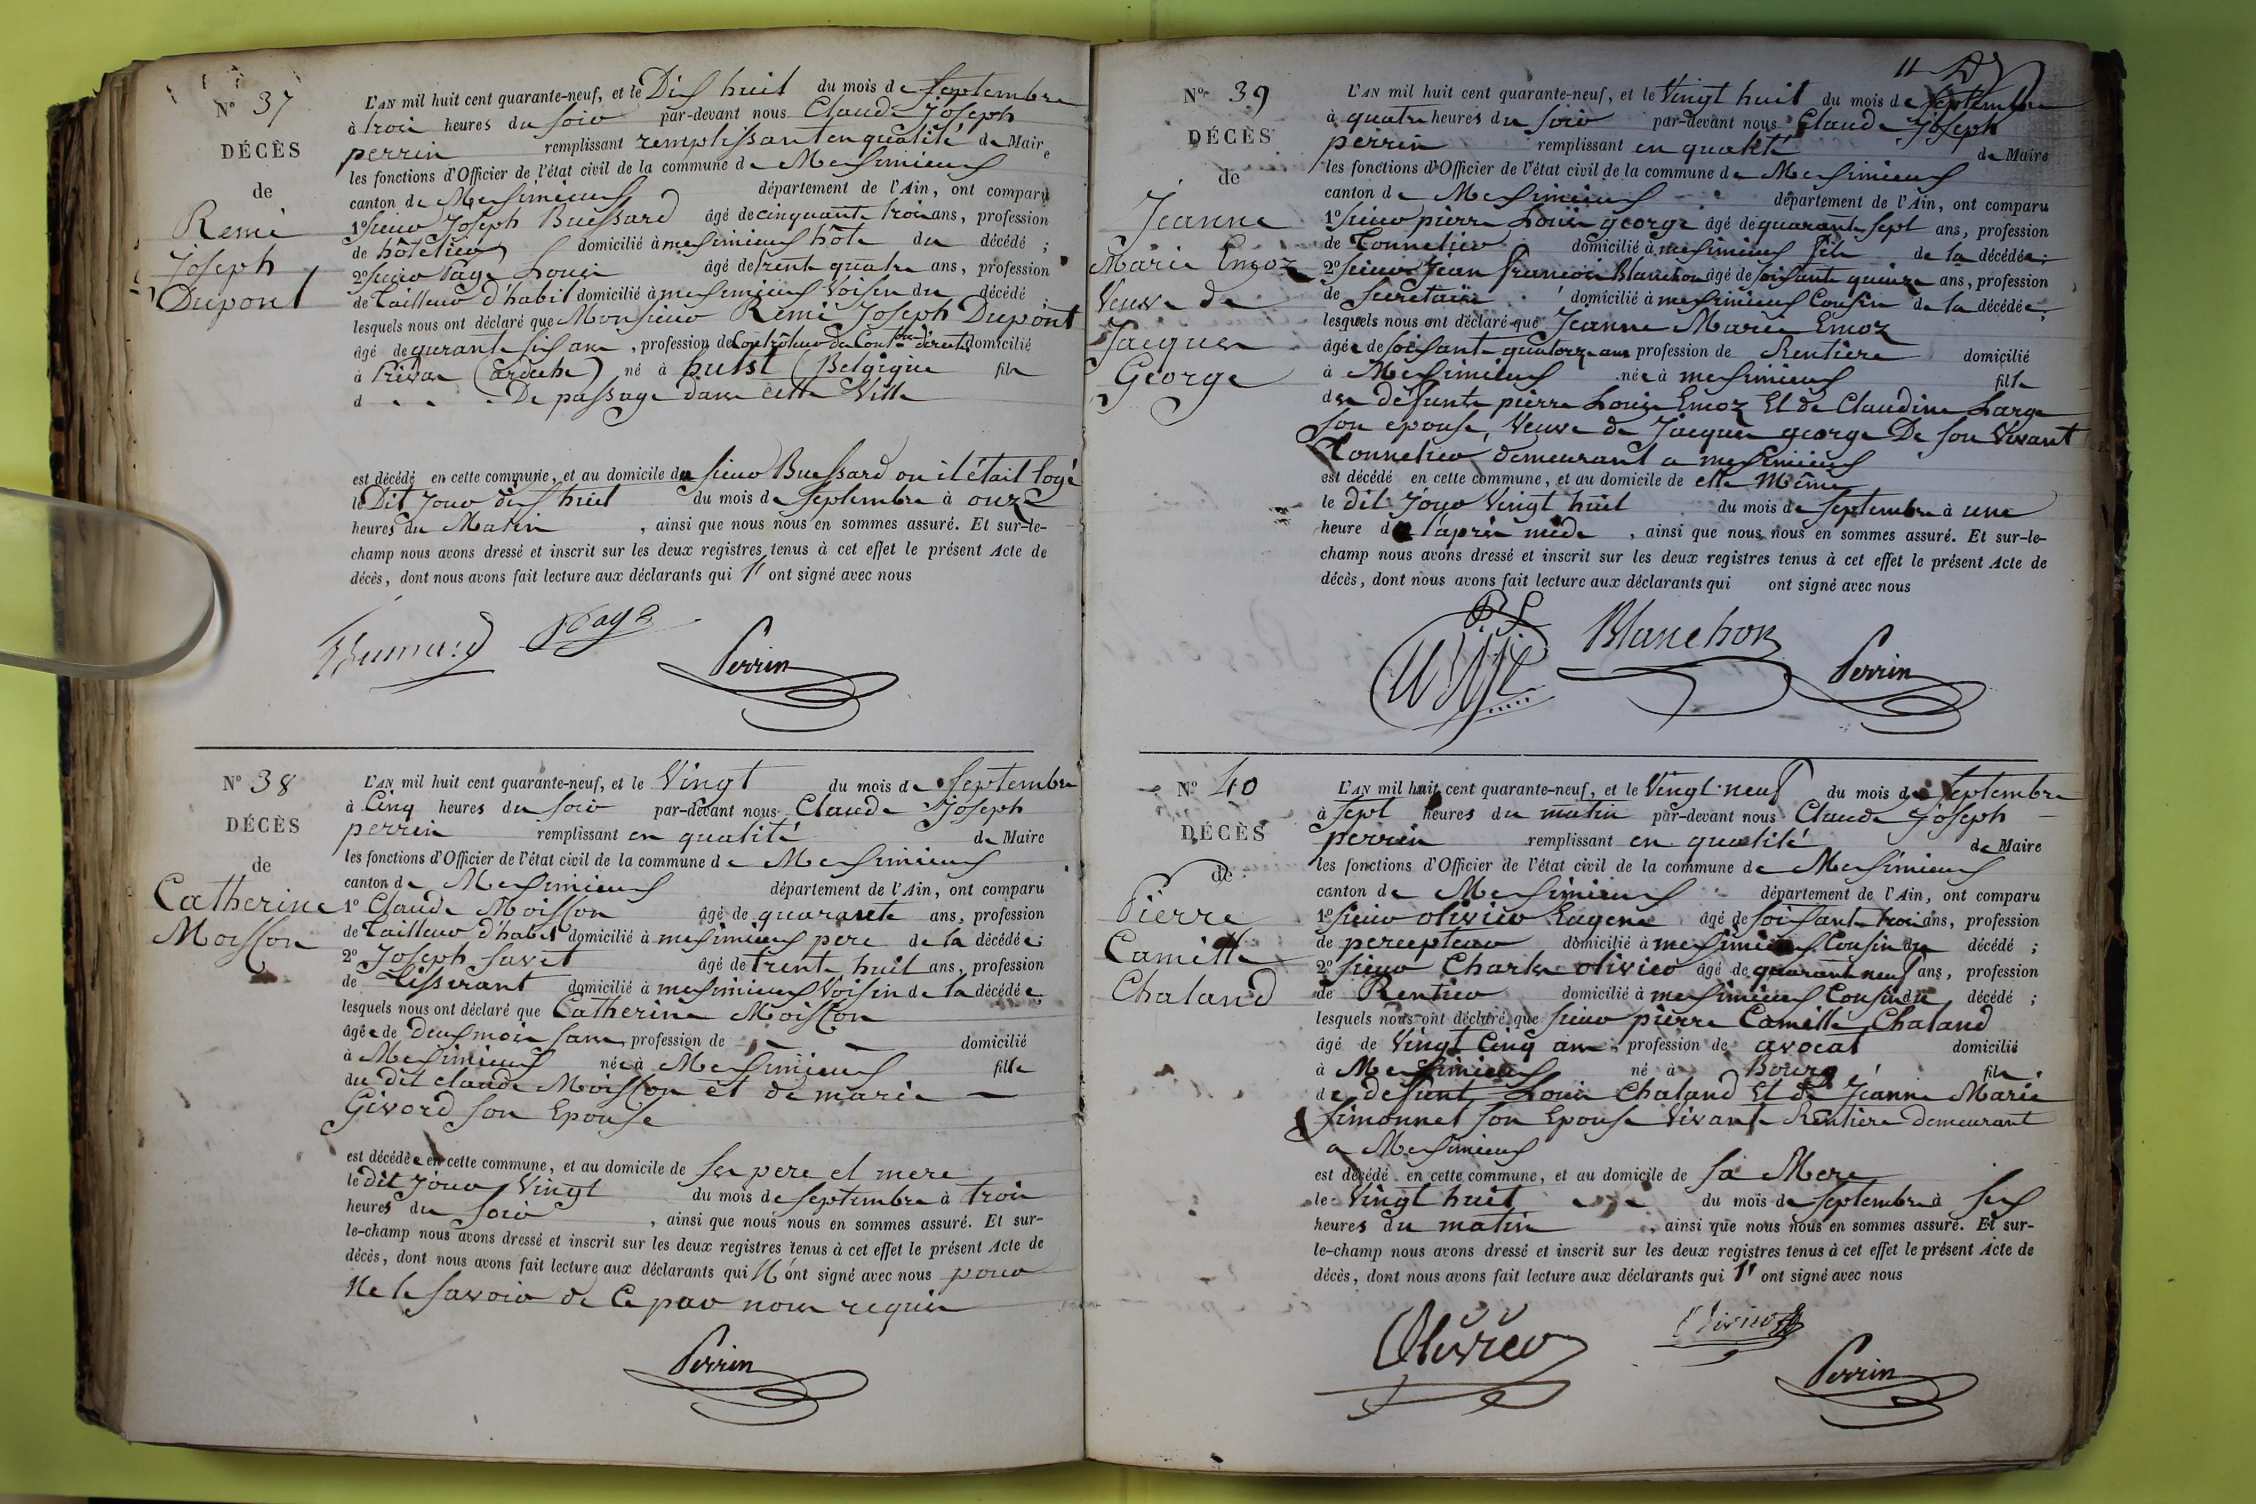 N° 37
DÉCÈS
de
Remi
Joseph
Dupont
L'AN mil huit cent quarante-neuf, et le Dix huit du mois de Septembre
à trois heures du soir par-devant nous Claude Joseph
perrin remplissant remplissant en qualité de Maire
les fonctions d'Officier de l'état civil de la commune de Meximieux
canton de Meximieux département de l'Ain, ont comparu
1° sieur Joseph Buessard âgé de cinquante trois ans, profession
de hôtelier domicilié à meximieux hôte du décédé ;
2° sieur Page Louis âgé de trente quatre ans, profession
de tailleur d'habit domicilié à meximieux Voisin du décédé ;
lesquels nous ont déclaré que Monsieur Remi Joseph Dupont
âgé de qurante six ans, profession de Contrôleur des Contons directes domicilié
à Privas (ardeche) né à hulst (Belgique fils
d De passage dans cette Ville
est décédé en cette commune, et au domicile du sieur Buessard ou il était logé
le Dit Jour dix huit du mois de Septembre à onze
heures du Matin, ainsi que nous nous en sommes assuré. Et sur-le-
champ nous avons dressé et inscrit sur les deux registres tenus à cet effet le présent Acte de
décès, dont nous avons fait lecture aux déclarants qui ont signé avec nous
Page
Perrin
N° 38
DÉCÈS
de
Catherine
Moisson
L'AN mil huit cent quarante-neuf, et le Vingt du mois de Septembre
à Cinq heures du soir par-devant nous Claude Joseph
perrin remplissant en qualité de Maire
les fonctions d'Officier de l'état civil de la commune de Meximieux
canton de Meximieux département de l'Ain, ont comparu
1° Claude Moisson âgé de quarante ans, profession
de tailleur d'habit domicilié à meximieux pere de la décédée
2° Joseph Savet âgé de trente huit ans, profession
de tisserant domicilié à meximieux Voisin de la décédée
lesquels nous ont déclaré que Catherine Moisson
âgée de deux mois sans profession de domicilié
à Meximieux née à Meximieux fille
du dit claude Moisson et de marie
Givord son Epouse
est décédée en cette commune, et au domicile de ses pere et mere
le dit jour Vingt du mois de Septembre à trois
heures du soir, ainsi que nous nous en sommes assuré. Et sur-
le-champ nous avons dressé et inscrit sur les deux registres tenus à cet effet le présent Acte de
décès, dont nous avons fait lecture aux déclarants qui N'ont signé avec nous pour
Ne le savoir de Ce par nous requis
Perrin
11
N° 39
DÉCÈS
de
Jeanne
Marie Emoz
Veuve de
Jacques
George
L'AN mil huit cent quarante-neuf, et le Vingt huit du mois de Septembre
à quatre heures du soir par-devant nous Claude Joseph
perrin remplissant en qualité de Maire
les fonctions d'Officier de l'état civil de la commune de Meximieux
canton de Meximieux département de l'Ain, ont comparu
1° sieur pierre Louis george âgé de quarante sept ans, profession
de Tonnelier domicilié à meximieux fils de la décédée ;
2° sieur Jean francois Blanchon âgé de soixante quinze ans, profession
de Secretaire domicilié à meximieux Cousin de la décédée ;
lesquels nous ont déclaré que Jeanne Marie Emoz
âgée de soixante quatorze ans profession de Rentiere domicilié
à Meximieux née à meximieux fille
des défunts pierre Louis Emoz Et de Claudine Large
son epouse, Veuve de Jacques george De son Vivant
Tonnelier demeurant a meximieux
est décédé en cette commune, et au domicile de elle Même
le dit Jour Vingt huit du mois de Septembre à une
heure de l'après mide, ainsi que nous nous en sommes assuré. Et sur-le-
champ nous avons dressé et inscrit sur les deux registres tenus à cet effet le présent Acte de
décès, dont nous avons fait lecture aux déclarants qui ont signé avec nous
Blanchon
Perrin
N° 40
DÉCÈS
de
Pierre
Camille
Chaland
L'AN mil huit cent quarante-neuf, et le Vingt neuf du mois de Septembre
à sept heures du matin par-devant nous Claude Joseph
perrin remplissant en qualité de Maire
les fonctions d'Officier de l'état civil de la commune de Meximieux
canton de Meximieux département de l'Ain, ont comparu
1° sieur olivier Eugene âgé de soixante trois ans, profession
de percepteur domicilié à meximieux Cousin du décédé ;
2° sieur Charles olivier âgé de quarante neuf ans, profession
de Rentier domicilié à meximieux Cousin du décédé ;
lesquels nous ont déclaré que sieur pierre Camille Chaland
âgé de Vingt Cinq ans, profession de avocat domicilié
à Meximieux né à Bourg fils
de defunt Louis Chaland Et de Jeanne Marie
simonnet son Epouse Vivante Rentiere demeurant
a Meximieux
est décédé en cette commune, et au domicile de sa Mere
le Vingt huit du mois de Septembre à six
heures du matin, ainsi que nous nous en sommes assuré. Et sur-
le-champ nous avons dressé et inscrit sur les deux registres tenus à cet effet le présent Acte de
décès, dont nous avons fait lecture aux déclarants qui ont signé avec nous
Olivier
Olivier
Perrin